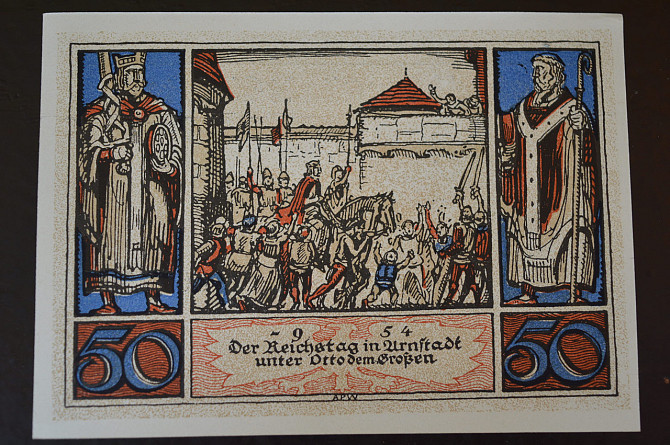 - 9 54
Der Reichstag in Arnstadt
unter Otto dem Großen
50 50
APW